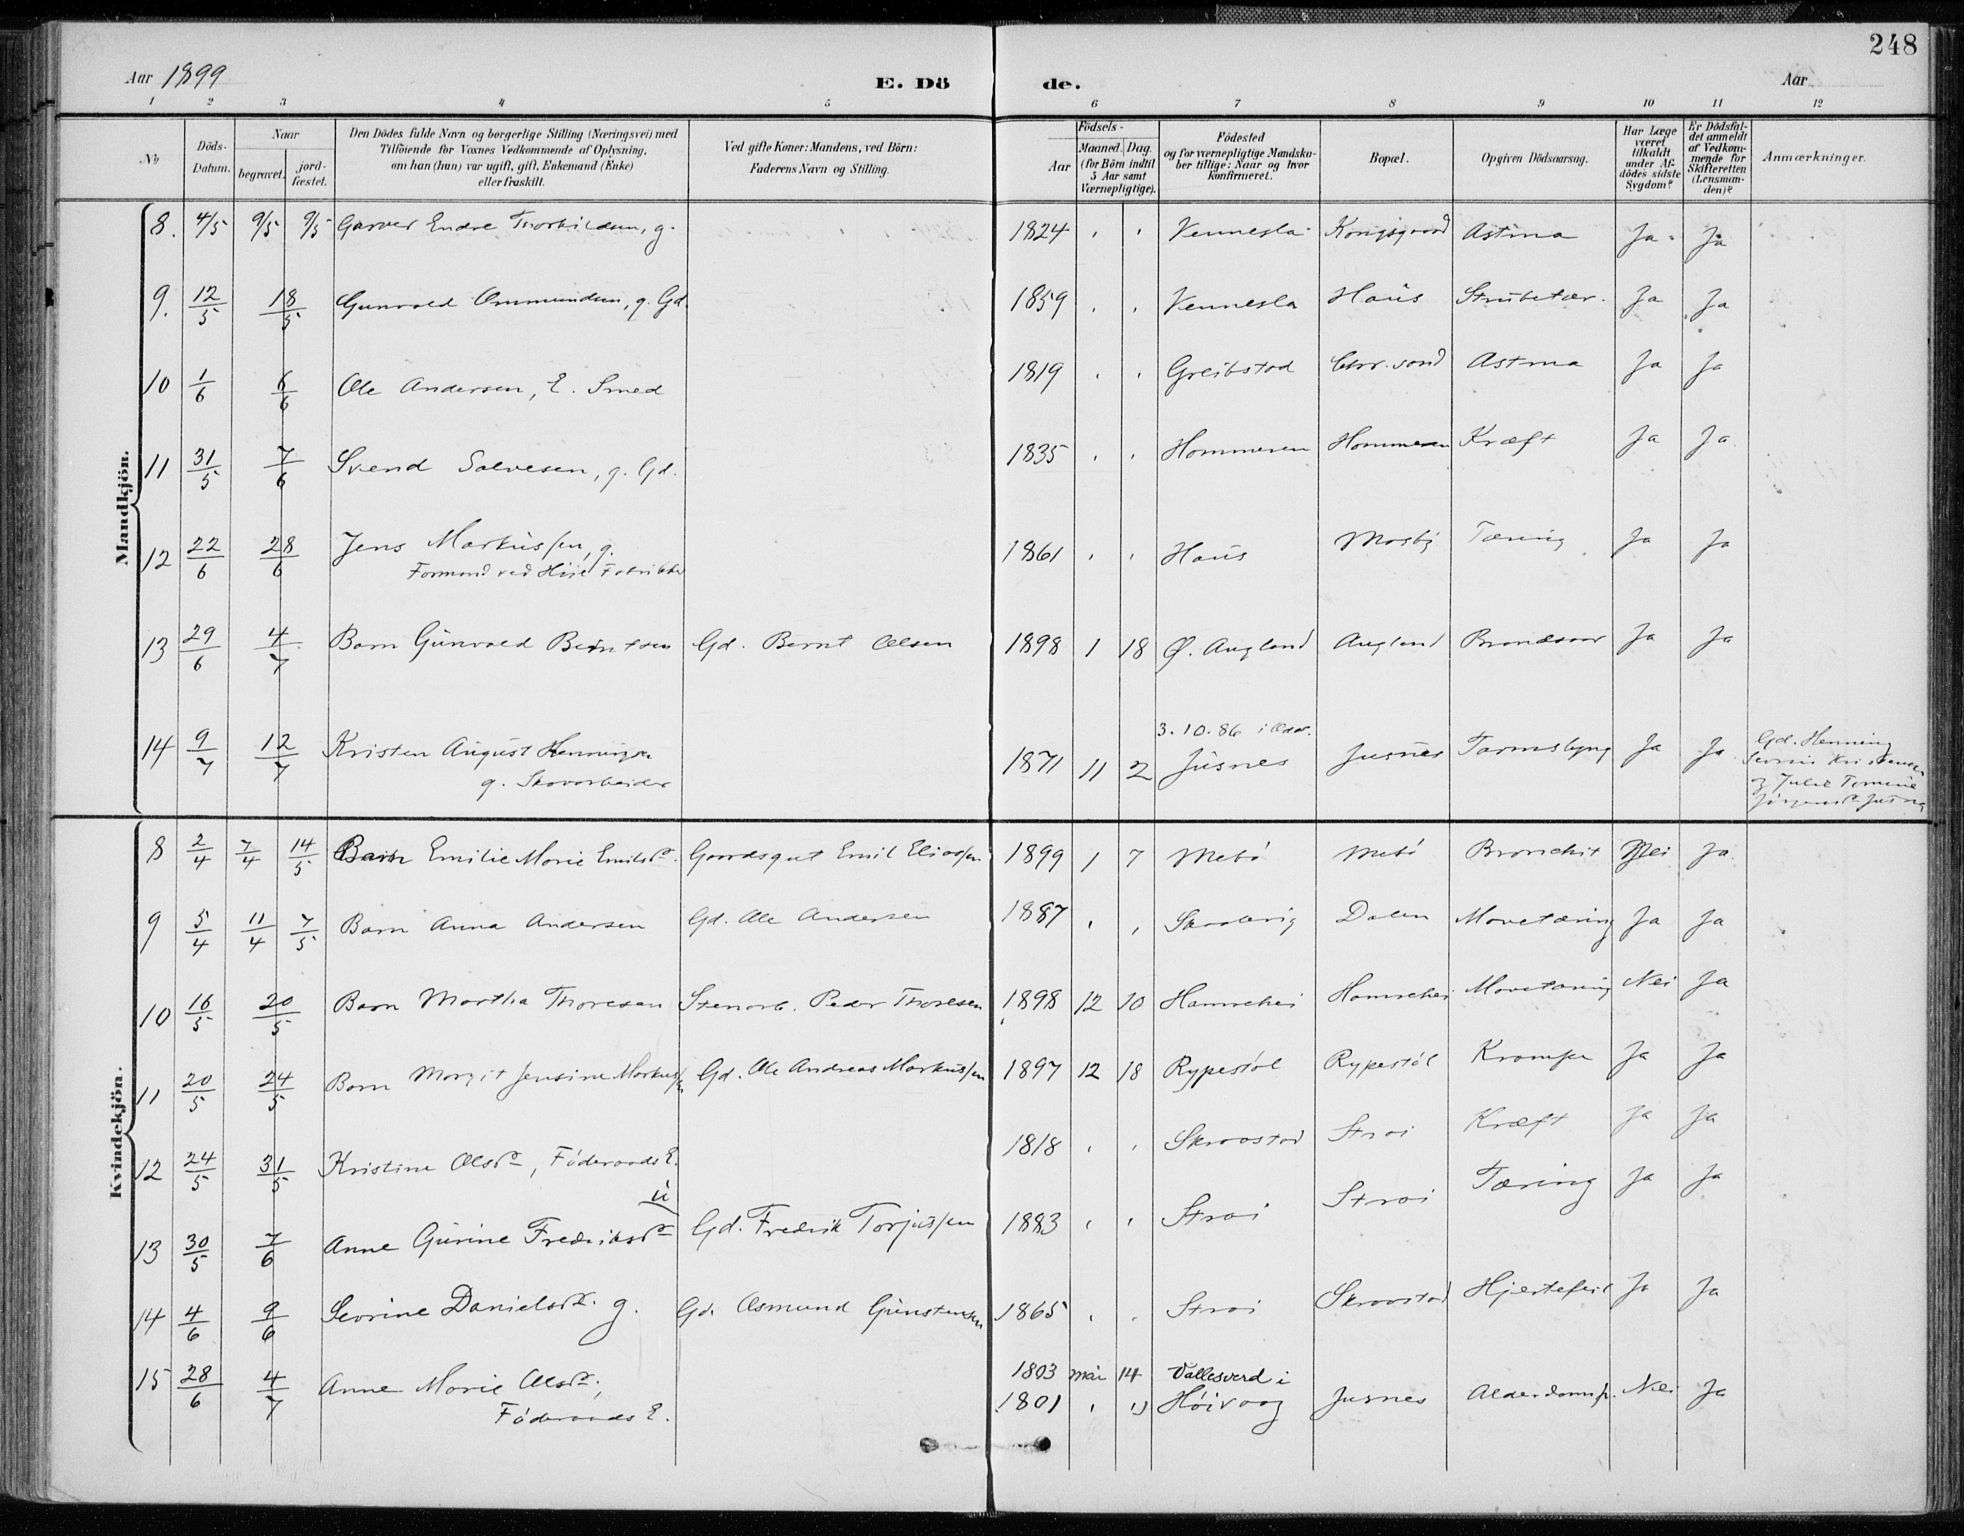 248
Aar 1899
E. Dö
de.
Aar
1 2 3 4 5 6 7 8 9 10 11 12
No
Döds-Datum.
Naar
begravet.
jordfæstet.
Den Dödes fulde Navn og borgerlige Stilling (Næringsvei) med
Tilföiende for Voxnes Vedkommende af Oplysning,
om han (hun) var ugift, gift, Enkemand (Enke)
eller fraskilt.
Ved gifte Koner: Mandens, ved Börn:
Faderens Navn og Stilling.
Födsels-
Aar
Maaned. Dag.
(for Börn indtil
5 Aar samt
Værnepligtige).
Födested
og for værnepligtige Mandskaber tillige: Naar og hvor
konfirmeret.
Bopæl.
Opgiven Dödsaarsag.
Har Læge
været
tilkaldt
under Afdödes sidste
Sygdom?
Er Dödsfaldet anmeldt
af Vedkommende for
Skifteretten
(Lensmanden)?
Anmærkninger.
Mandkjön.
8. 4/5 9/5 9/5 Garver Endre Thorkildsen, g. 1824 Vennesla Kongsgaard Astma Ja Ja
9. 12/5 18/5 Gunvald Ommundsen, g. Gd. 1859 Vennesla Haus Strubetær. Ja Ja
10 1/6 6/6 Ole Andersen, E. Smed 1819 Greibstad Chr.sand Astma Ja Ja
11 31/5 7/6 Svend Salvesen, g. Gd. 1835 Hommeren Hommeren Kræft Ja Ja
12 22/6 28/6 Jens Markussen, g. 1861 Haus Mosby Tæring Ja Ja
Formand ved Höie Fabrikker
13 29/6 4/7 Barn Gunvald Berntsen Gd. Bernt Olsen 1898 1 18 Ø. Augland Augland Brandsaar Ja Ja
3.10.86 i
14 9/7 12/7 Kristen August Hennings. 1871 11 2 Jusnes Jusnes Tarmslyng Ja Ja Gd. Henning
g. Skovarbeider
Kristensen
og Julie Tomine
Kvindekjön.
8 2/4 7/4 14/5 Barn Emilie Marie Emilsd. Gaardsgut Emil Eliassen 1899 1 7 Mebö Mebö Bronchit Nei Ja
9 5/4 11/4 7/5 Barn Anna Andersen Gd. Ole Andersen 1887 Dalen Mavetæring Ja Ja
10 16/5 20/5 Barn Martha Thoresen Stenarb. Peder Thoresen 1898 12 10 Hamrehei Hamrehei Mavetæring Nei Ja
11 20/5 24/5 Barn Margit Jensine Markussen Gd. Ole Andreas Markussen 1897 12 18 Rypestöl Rypestöl Krampe Ja Ja
12 24/5 31/5 Kristine Olsd., Föderaads E. 1818 Skraastad Strai Kræft Ja Ja
13 30/5 7/6 Anne Gurine Fredriksd. u Gd. Fredrik Torjussen 1883 Strai Strai Tæring Ja Ja
14 4/6 9/6 Sevrine Danielsd. g. Gd. Asmund Gunstensen 1865 Strai Skraastad Hjertefeil Ja Ja
1803 mai 14 Vallesverd i
15 28/6 4/7 Anne Marie Olsd., 1801 Höivaag Jusnes Alderdomsf. Nei Ja
Föderaads E.